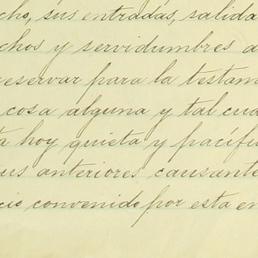 cho, sus entradas, salida
chos y servidumbres a
reservar para la testam
cosa alguna y tal cua
ta hoy quieta y pacífi
sus anteriores causante
cio convenido por esta en